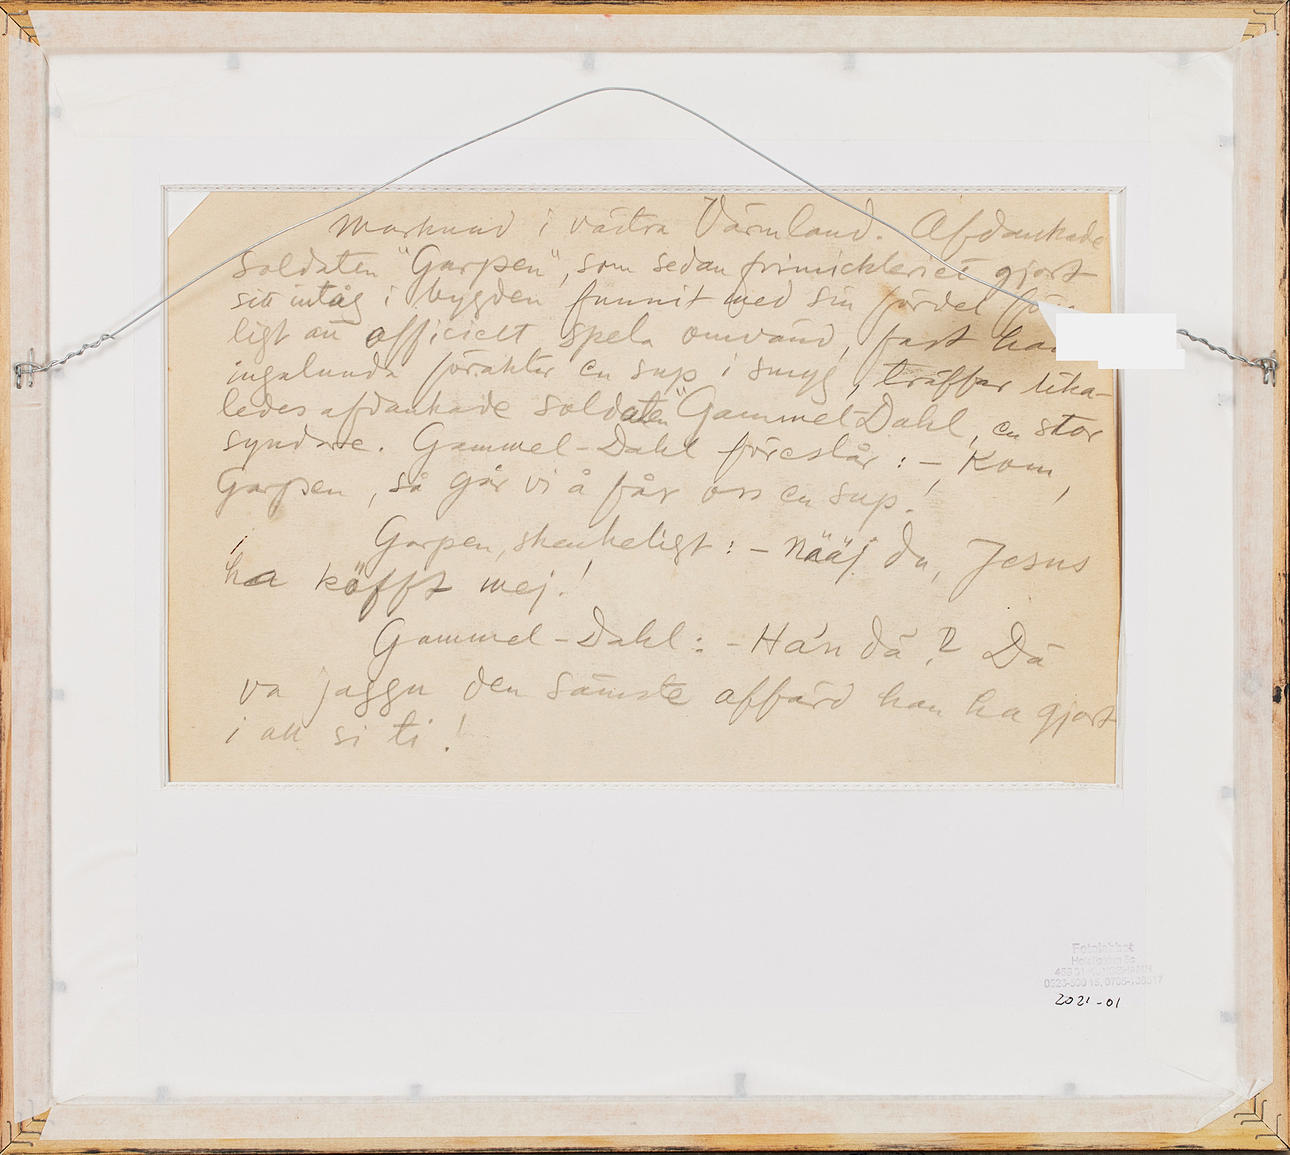 Marknad i västra Värmland. Afdankade
soldaten "Garpen", som sedan frimickleriet gjort
sitt intåg i bygden funnit med sin fördel
ligt att officielt spela omvänd, fast
ingalunda föraktar en sup i smyg, träffar lika-
ledes afdankade soldaten "Gammel-Dahl, en stor
syndare. Gammel-Dahl föreslår: – Kom,
Garpen, så går vi å får oss en sup!
Garpen, skenheligt: – Nääj du, Jesus
ha köfft mej!
Gammel-Dahl: – Ha'n dä? Dä
va jaggu den sämste affärd han ha gjort
i all si ti!
Fotolabbet
2021-01